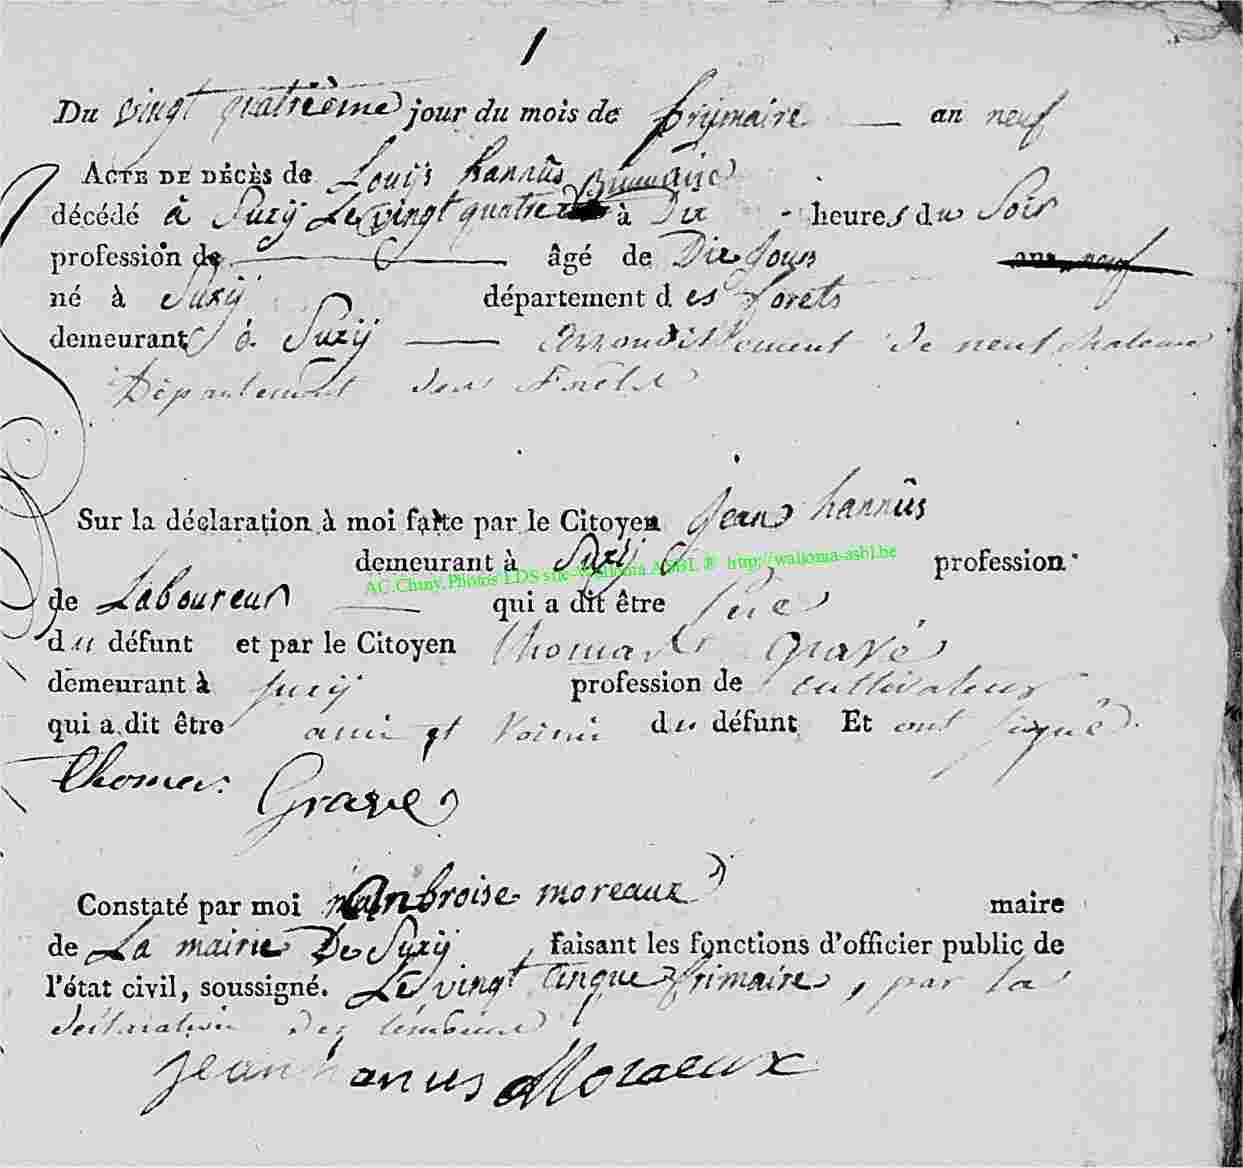 1
Du vingt quatrième jour du mois de frijmaire — an neuf
ACTE DE DÉCÈS de Louijs hannûs
décédé à Suzij Le vingt quatre frimaire à Dix heures du Soir
profession de — âgé de Dix Jours ans neuf
né à Suzij département des forets
demeurant à Suzij — arrondissement de neufchateau
Département des Forêts
Sur la déclaration à moi faite par le Citoyen Jean hannûs
demeurant à Suzij profession
AC.Chiny.Photos LDS site Wallonia ASBL ® http://wallonia-asbl.be
de Laboureur — qui a dit être Pere
du défunt et par le Citoyen thomas gravé
demeurant à suzij profession de cultivateur
qui a dit être ami et voisin du défunt Et ont signé
thomas Grave
Constaté par moi ambroise moreaux maire
de La mairie De Suzij, faisant les fonctions d'officier public de
l'état civil, soussigné. Le vingt Cinque frimaire, par la
déclaration des témoins
jean hanus Moreaux